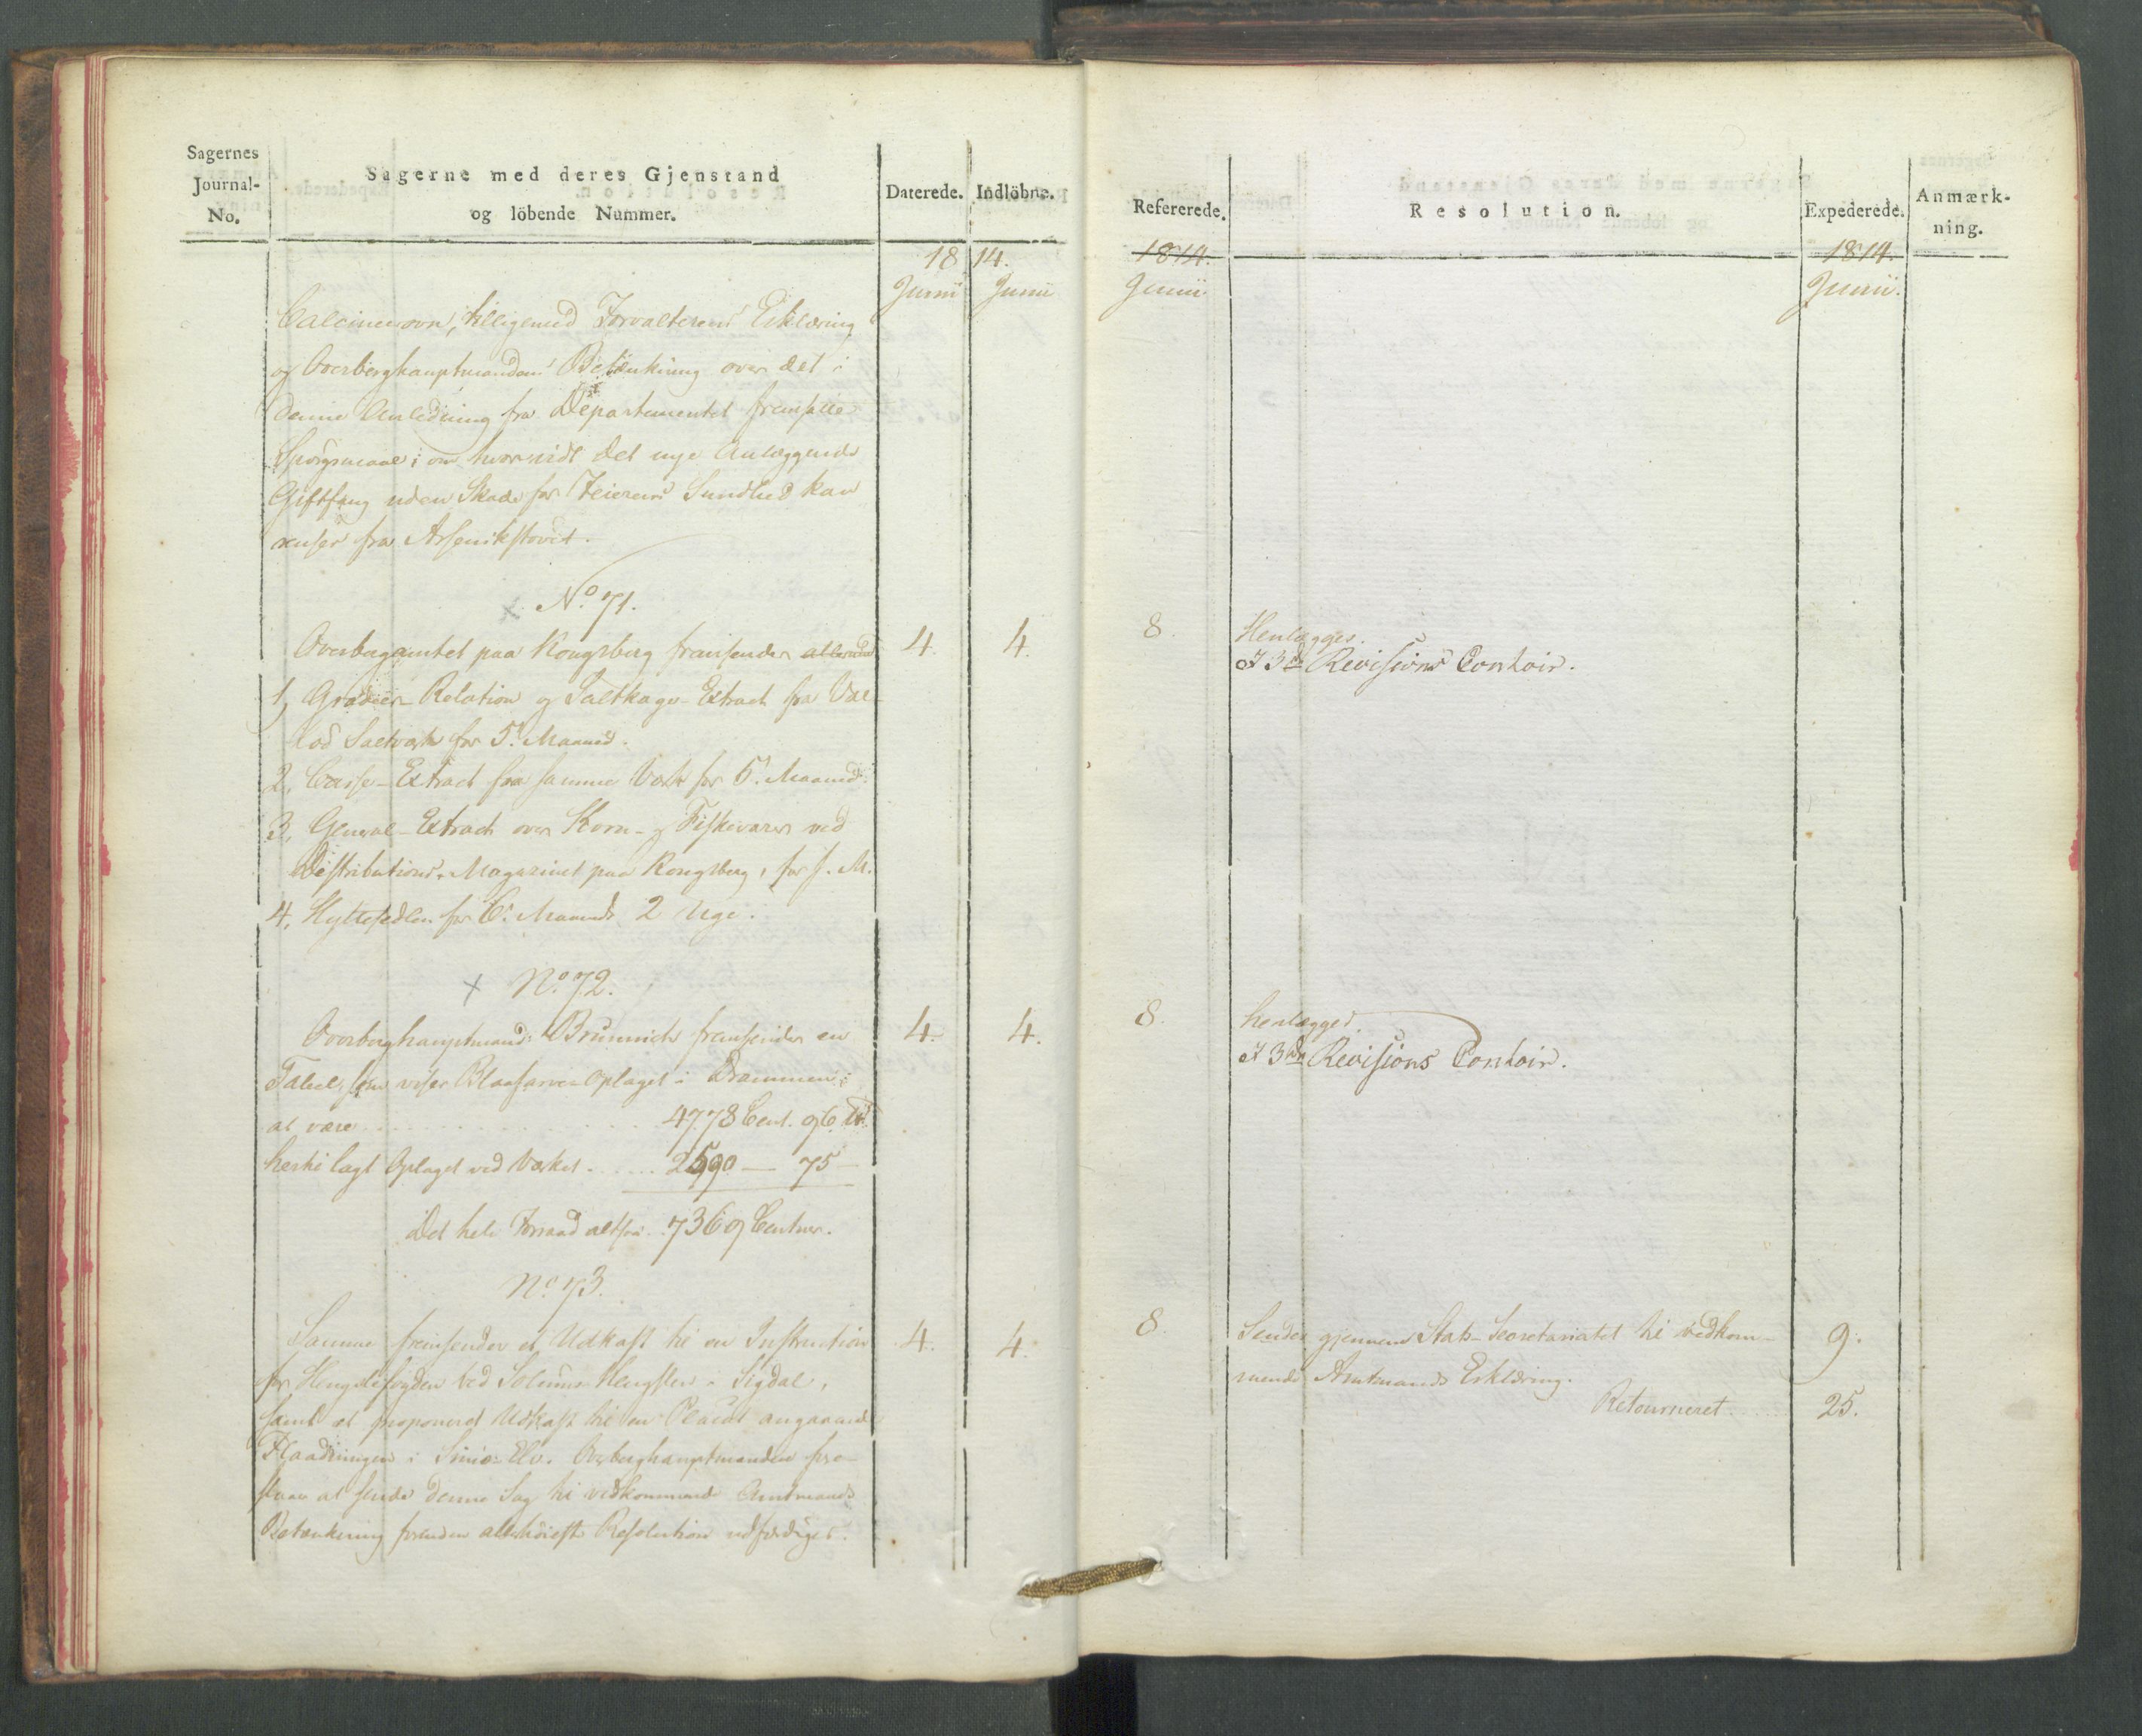 Sagernes
Journal-
No.
Sagerne med deres Gjenstand
og löbende Nummer.
Daterede.
Indlöbne.
1814.
Junii Junii
Calcineerovn, tilligemed Forvalterens Erklæring
og Overberghauptmandens Betænkning over det i
denne Anledning fra Departementet fremsatte
Spørgsmaal; om hvorvidt det nye Anlæggende
Giftfang uden Skade for Feierens Sundhed kan
renses fra Arsenikstøvet.
No. 71.
Overbergamtet paa Kongsberg fremsender allerunderd 4. 4.
1, Gradeer-Relation og Saltkage-Extract fra Val-
løe Saltværk for 5te Maaned.
2, Casse-Extract fra samme Værk for 5te Maaned.
3, General-Extract over Korn- og Fiskevarer ved
Distributions-Magazinet paa Kongsberg, for s. M.
4, Hyttesedler for 6te Maaneds 2 Uge.
× No. 72.
Overberghauptmand Brünnich fremsender en 4. 4.
Tabel, som viser Blaafarve-Oplaget i Drammen
at være 4778 Cent. 96 ℔.
hertil lagt Oplaget ved Værket 2590 — 75 —
Det hele Forraad altsaa 7369 Centner.
No. 73.
Samme fremsender et Udkast til en Instruction 4. 4.
for Hengslefogden ved Solums Hengsler i Sigdal,
samt et proponeret Udkast til en Placat angaaende
Flaadningen i Simoe Elv. Overberghauptmanden fore-
slaar at sende denne Sag til vedkommende Amtmands
Betænkning forinden allerhøieste Resolution udfærdiges.
Refererede.
Resolution.
Expederede.
Anmærk-
ning.
1814. 1814.
Junii Junii.
8. Henlægges.
3de Revisions Contoir.
8. henlægges
3de Revisions Contoir.
8. Sendes gjennem Stats-Secretariatet til vedkom- 9.
mende Amtmands Erklæring.
Retourneret 25.